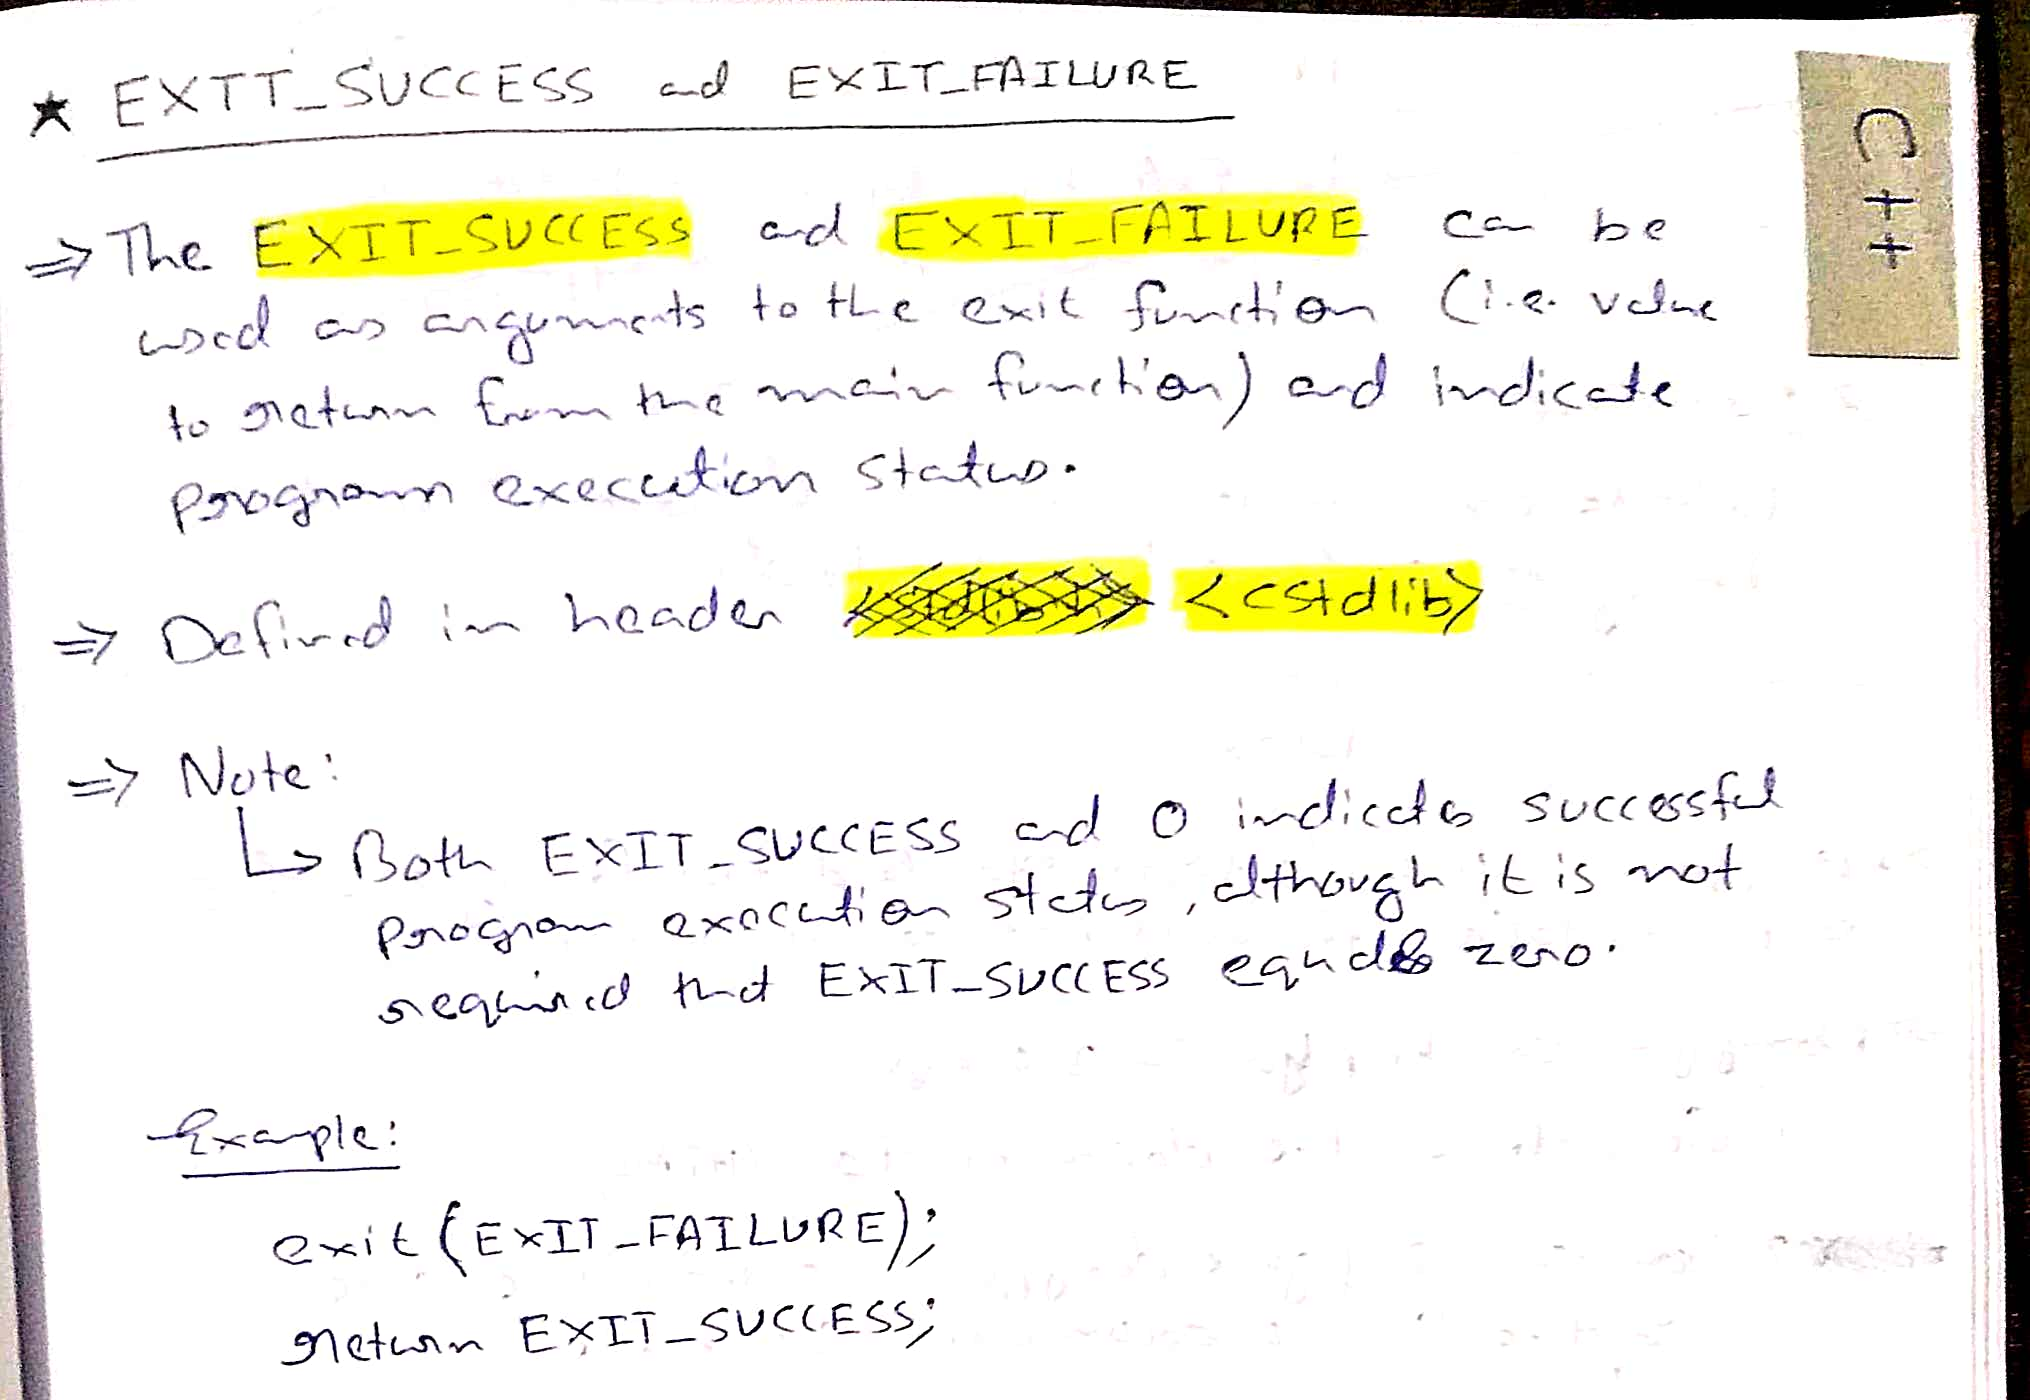 ★ EXIT_SUCCESS and EXIT_FAILURE
C++
⇒ The EXIT_SUCCESS and EXIT_FAILURE can be
used as arguments to the exit function (i.e. value
to return from the main function) and indicate
program execution status.
⇒ Defined in header <cstdlib>
⇒ Note:
↳ Both EXIT_SUCCESS and 0 indicates successful
program execution status, although it is not
required that EXIT_SUCCESS equals zero.
Example:
exit(EXIT_FAILURE);
return EXIT_SUCCESS;